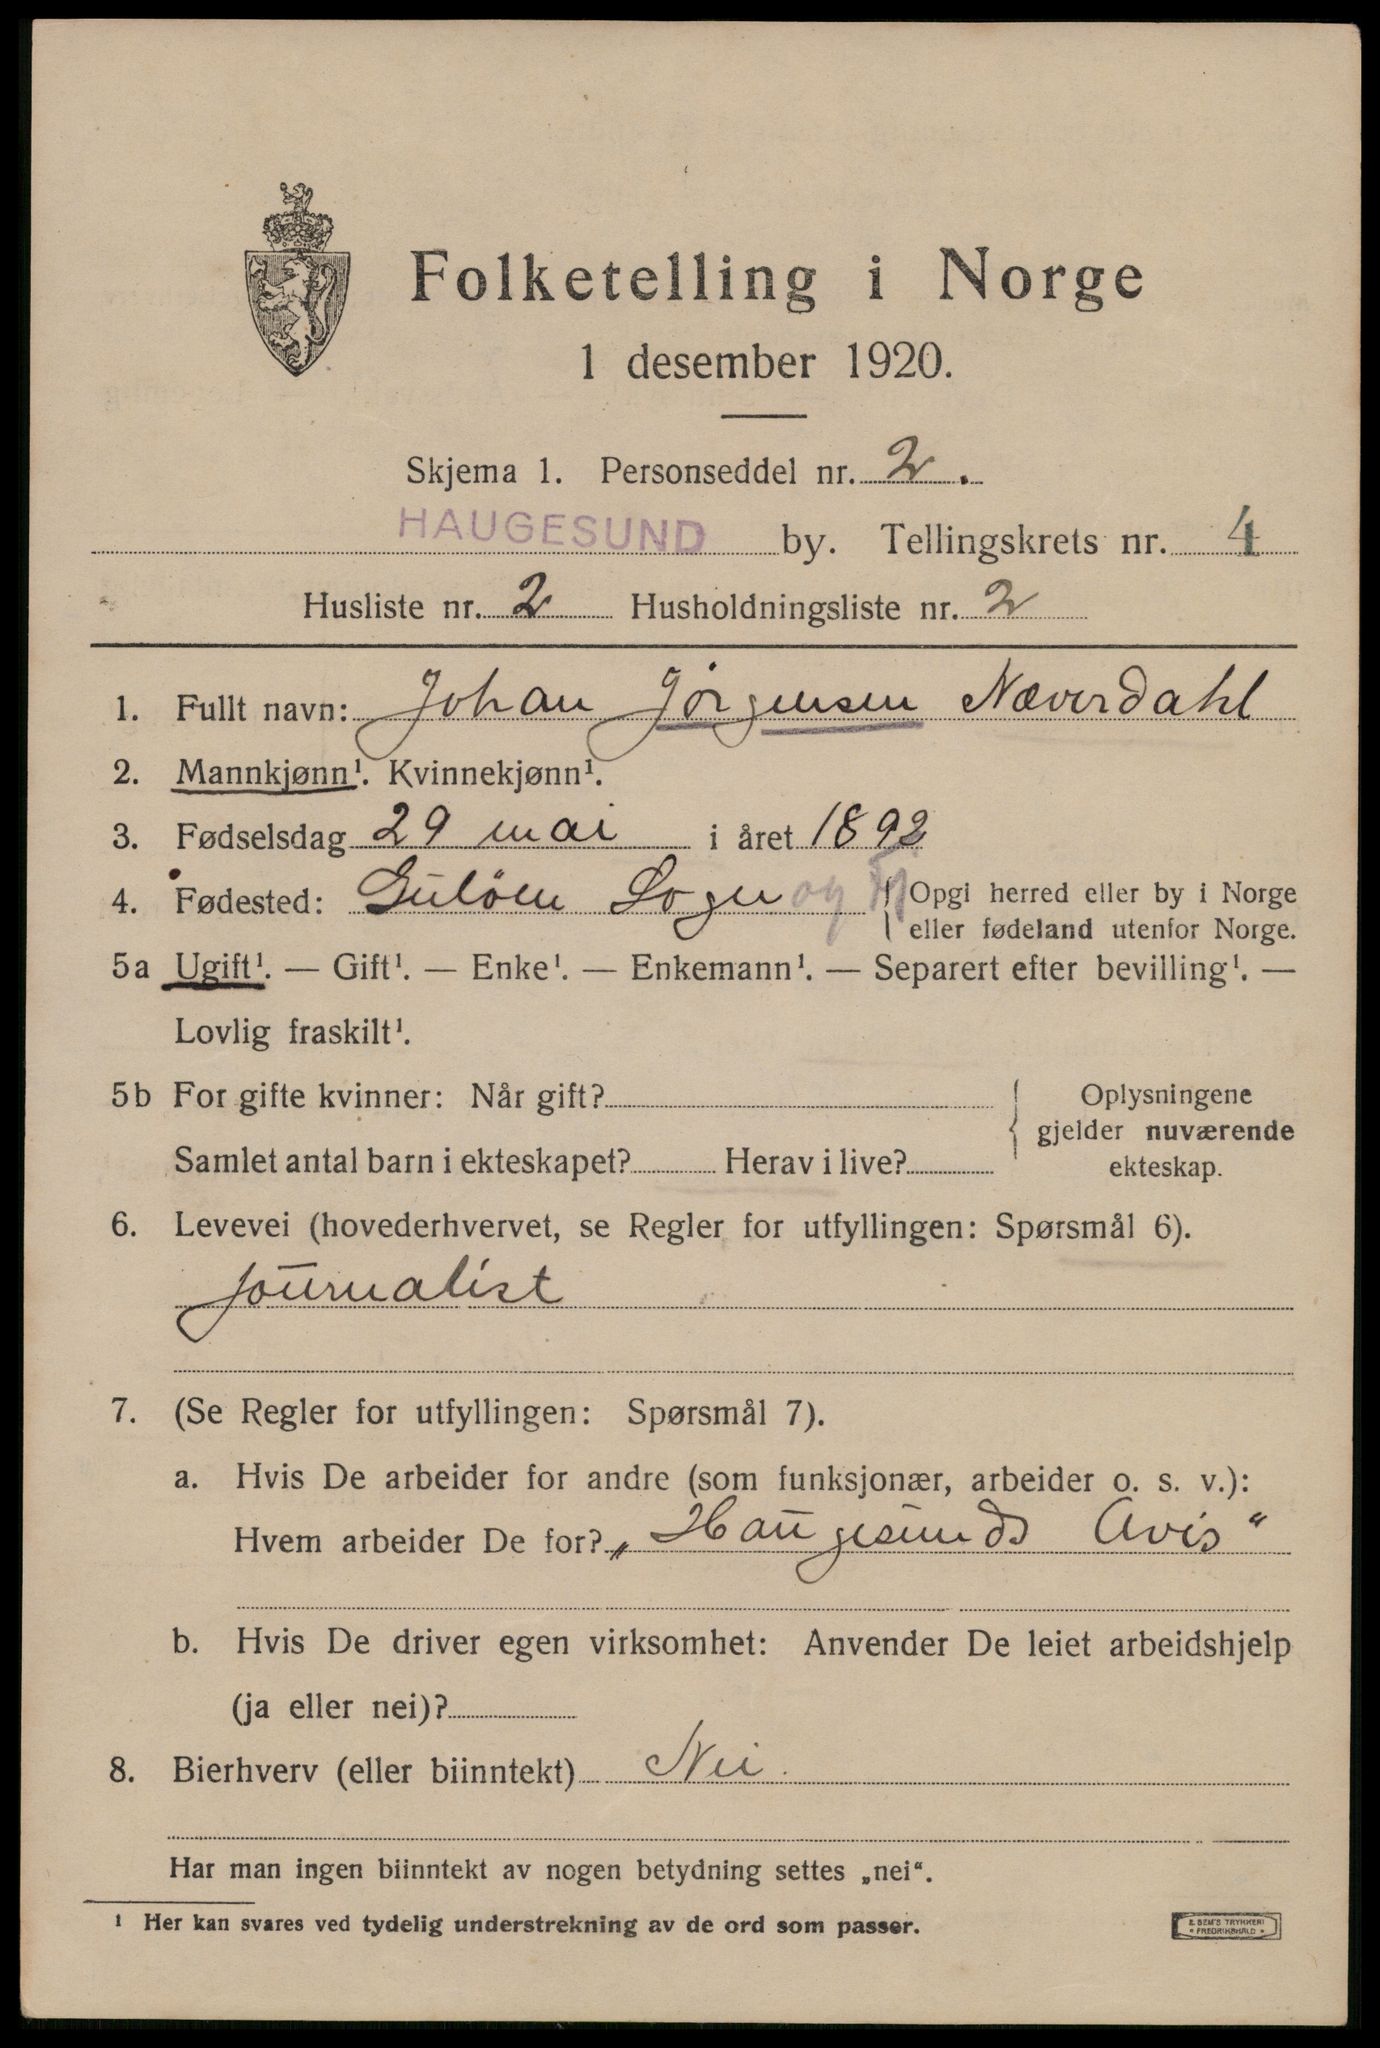 Folketelling i Norge
1 desember 1920.
Skjema 1. Personseddel nr. 2.
HAUGESUND by. Tellingskrets nr. 4
Husliste nr. 2 Husholdningsliste nr. 2
1. Fullt navn: Johan Jörgensen Næverdahl
2. Mannkjønn¹. Kvinnekjønn¹.
3. Fødselsdag 29 mai i året 1892
4. Fødested: Gulöen Sogn og Fj { Opgi herred eller by i Norge
eller fødeland utenfor Norge.
5a Ugift¹. — Gift¹. — Enke¹. — Enkemann¹. — Separert efter bevilling¹. —
Lovlig fraskilt¹.
5b For gifte kvinner: Når gift? { Oplysningene
gjelder nuværende
Samlet antal barn i ekteskapet? Herav i live? ekteskap.
6. Levevei (hovederhvervet, se Regler for utfyllingen: Spørsmål 6).
Journalist
7. (Se Regler for utfyllingen: Spørsmål 7).
a. Hvis De arbeider for andre (som funksjonær, arbeider o. s. v.):
Hvem arbeider De for? „Haugesunds Avis"
b. Hvis De driver egen virksomhet: Anvender De leiet arbeidshjelp
(ja eller nei)?
8. Bierhverv (eller biinntekt) Nei.
Har man ingen biinntekt av nogen betydning settes „nei".
¹ Her kan svares ved tydelig understrekning av de ord som passer.
E SEM'S TRYKKERI
• FREDRIKSHALD •